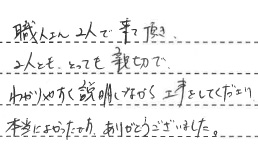 職人さん2人で来て頂き、
2人とも、とっても親切で、
わかりやすく説明しながら工事をしてくださり
本当によかったです。ありがとうございました。